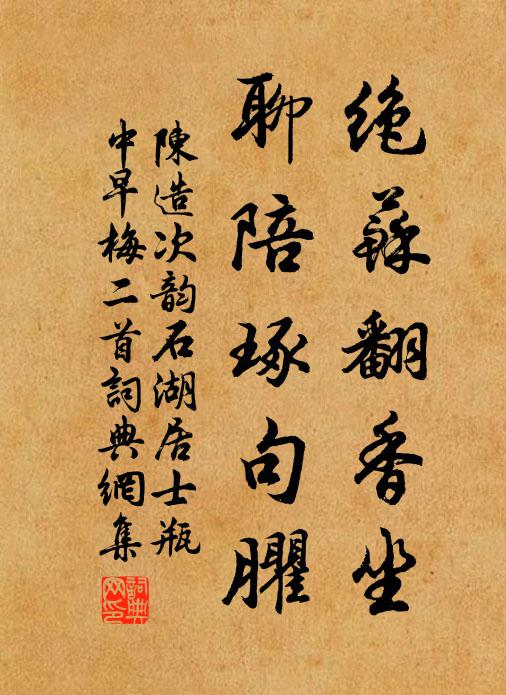 绝蘇翻香坐
聊陪琢句臞
陳造次韵石湖居士瓶
中早梅二首詞典網集
詞典網印